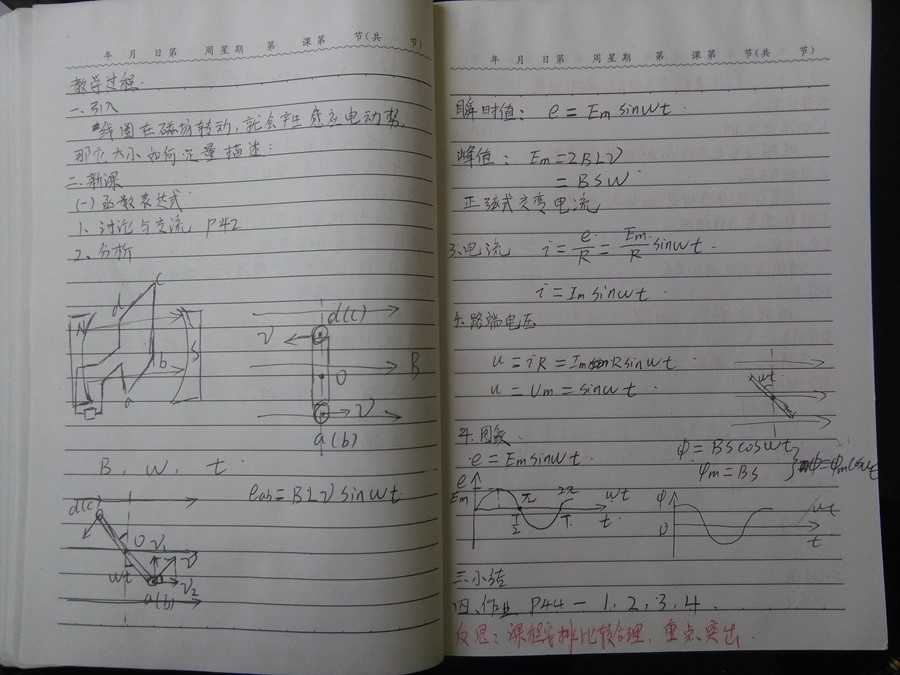 年 月 日第 周星期 第 课第 节(共 节)
教学过程.
一.引入
线圈在磁场转动,就会产生感应电动势
那么大小如何定量描述:
二.新课
(一)函数表达式
1、讨论与交流 P42
2、分析
c
d
N
S
b
a
d(c)
v
B
O
v
a(b)
B、W、t.
eab=BLVsinwt
d(c)
O
v1
v
wt
v2
a(b)
年 月 日第 周星期 第 课第 节(共 节)
瞬时值: e = Em sinwt.
峰值: Em=2BLV
= BSW.
正弦式交变电流
3.电流 i = e/R = Em/R sinwt.
i = Im sinwt.
路端电压
u = iR = Im R sinwt
u = Um = sinwt.
wt
4.图象.
e = Em sinwt.
φ = BScoswt
φm = BS
φ=φm coswt
e
Em
π
2π
wt
T/2
T
t
φ
0
wt
t
三.小结
四.作业 P44-1.2.3.4.
反思:课程安排比较合理,重点突出.